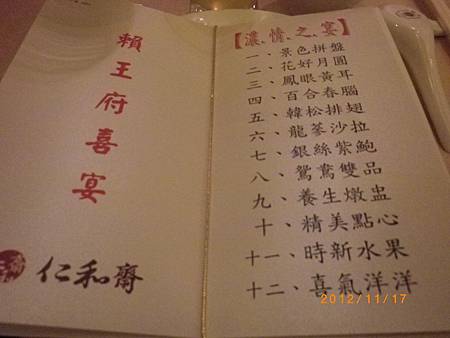 賴王府喜宴
仁和齋
【濃、情、之、宴】
一、景色拼盤
二、花好月圓
三、鳳眼黃耳
四、百合春腦
五、韓松排翅
六、龍蔘沙拉
七、銀絲紫鮑
八、鴛鴦雙品
九、養生燉盅
十、精美點心
十一、時新水果
十二、喜氣洋洋
2012/11/17